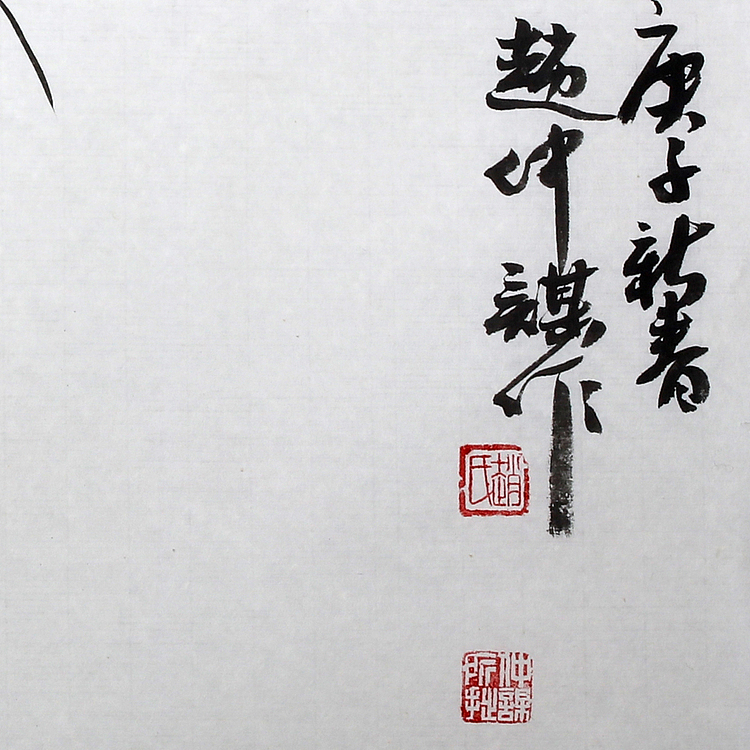 庚子新春
趙仲謀作
趙氏
仲謀